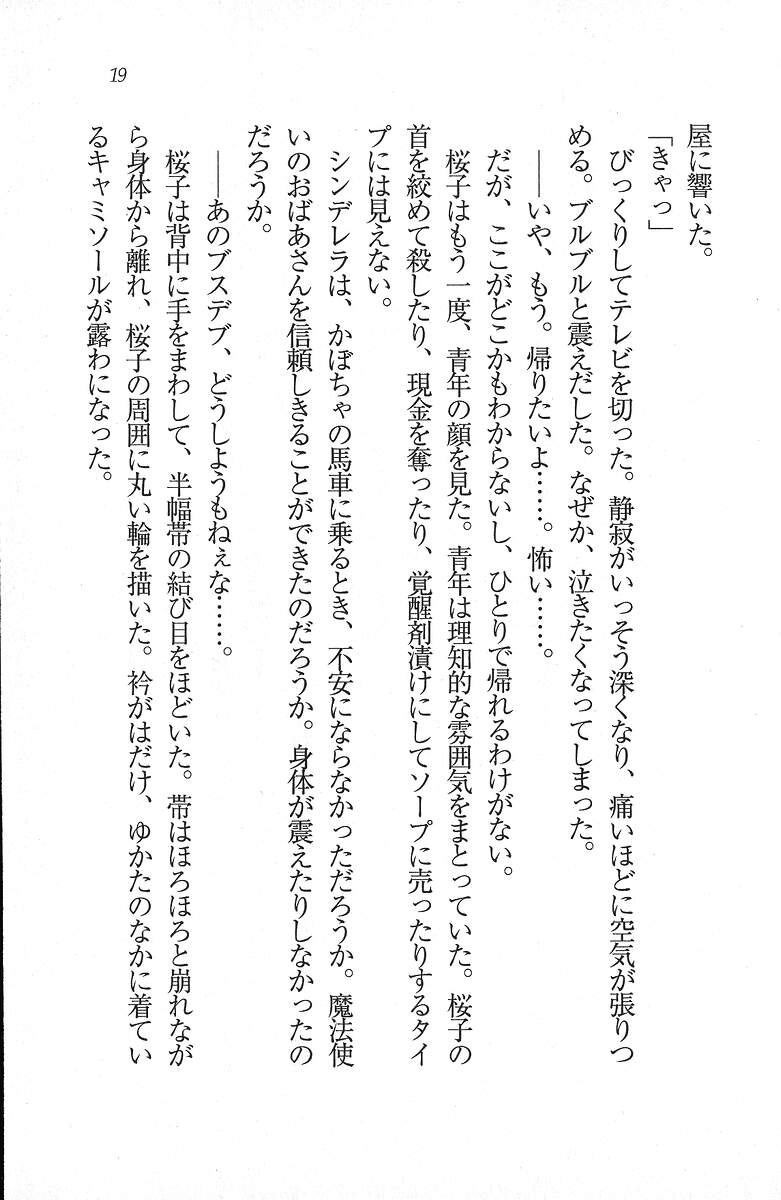 19
屋に響いた。
「きゃっ」
びっくりしてテレビを切った。静寂がいっそう深くなり、痛いほどに空気が張りつ
める。ブルブルと震えだした。なぜか、泣きたくなってしまった。
──いや、もう。帰りたいよ……。怖い……。
だが、ここがどこかもわからないし、ひとりで帰れるわけがない。
桜子はもう一度、青年の顔を見た。青年は理知的な雰囲気をまとっていた。桜子の
首を絞めて殺したり、現金を奪ったり、覚醒剤漬けにしてソープに売ったりするタイ
プには見えない。
シンデレラは、かぼちゃの馬車に乗るとき、不安にならなかっただろうか。魔法使
いのおばあさんを信頼しきることができたのだろうか。身体が震えたりしなかったの
だろうか。
──あのブスデブ、どうしようもねぇな……。
桜子は背中に手をまわして、半幅帯の結び目をほどいた。帯はほろほろと崩れなが
ら身体から離れ、桜子の周囲に丸い輪を描いた。衿がはだけ、ゆかたのなかに着てい
るキャミソールが露わになった。